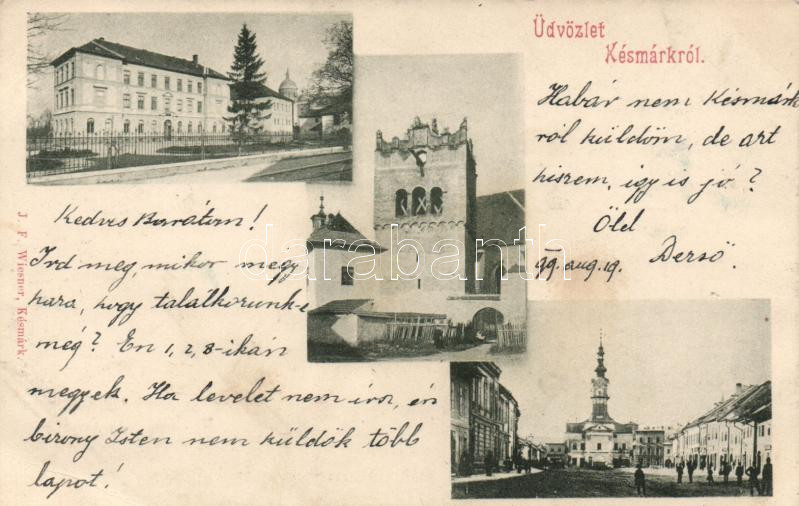 Üdvözlet
Késmárkról.
Habár nem Késmárk
ról küldöm, de azt
hiszem, így is jó?
Öld
Dersö.
99. aug. 19.
Kedves Barátom!
Ird meg, mikor megy
haza, hogy találkorunk-e
még? En 1, 2, 3-ikán
megyek. Ha levelet nem irsz, én
bizony Isten nem küldök több
lapot!
J. F. Wiesner, Késmárk.
darabanth